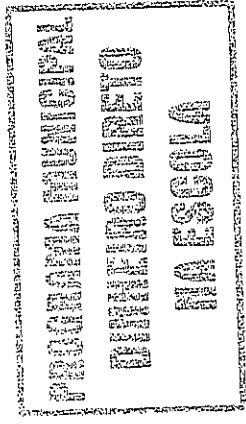 PROGRAMA MUNICIPAL
DINHEIRO DIRETO
NA ESCOLA